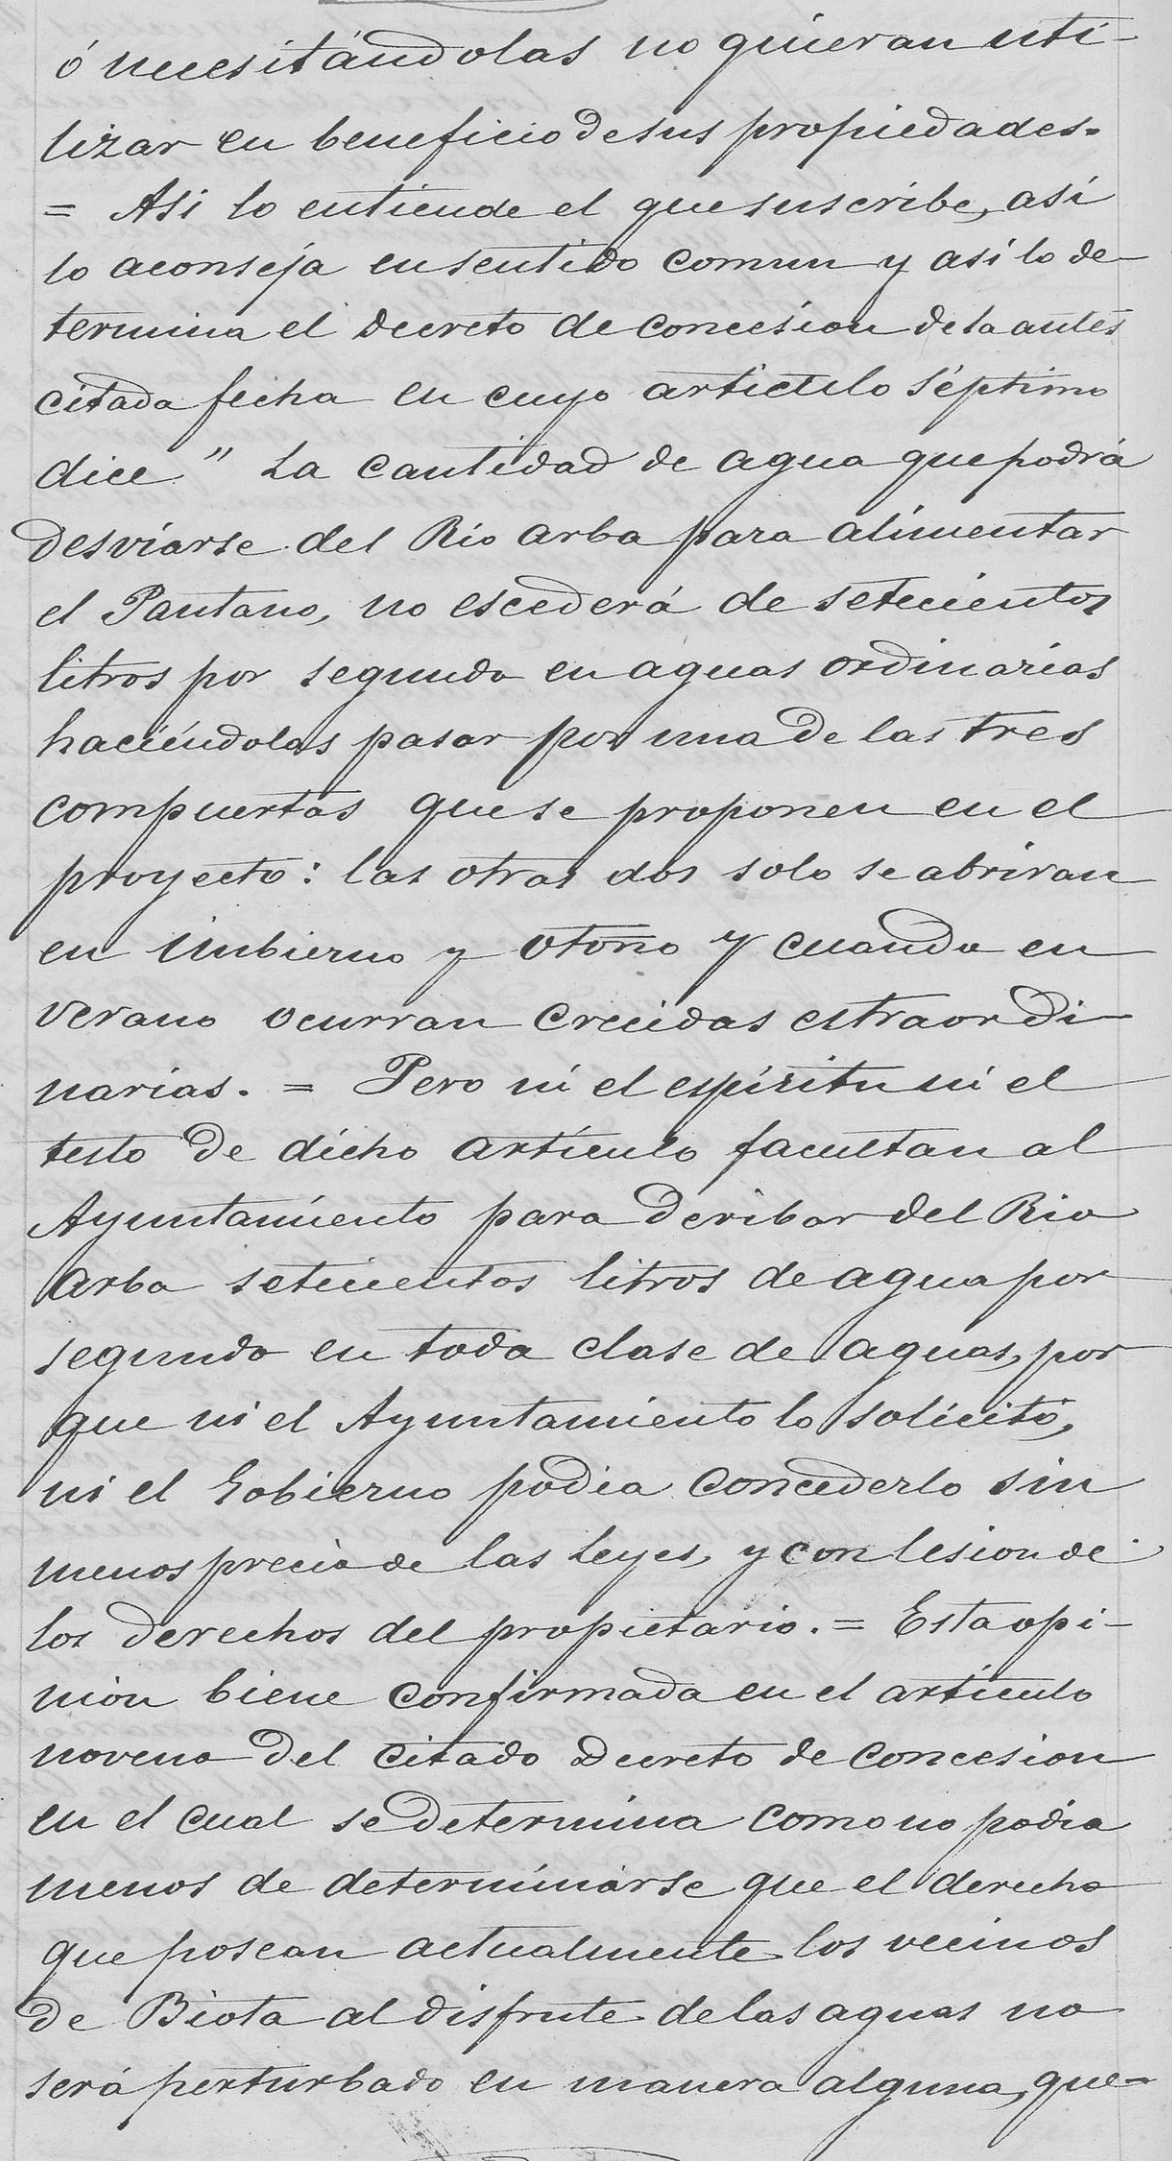 ó necesitándolas no quieran uti-
lizar en beneficio de sus propiedades.
= Asi lo entiende el que suscribe, así
lo aconseja en sentido comun y así lo de-
termina el Decreto de concesion de la antes
citada fecha en cuyo artictulo séptimo
dice " La cantidad de agua que podrá
desviarse del Rio Arba para alimentar
el Pantano, no escederá de setecientos
litros por segundo en aguas ordinarias
haciéndolas pasar por una de las tres
compuertas que se proponen en el
proyecto: las otras dos solo se abriran
en imbierno y otoño y cuando en
verano ocurran crecidas estraordi-
narias. = Pero ni el espíritu ni el
testo de dicho artículo facultan al
Ayuntamiento para deribar del Rio
Arba setecientos litros de agua por
segundo en toda clase de aguas, por
que ni el Ayuntamiento lo solicitó,
ni el Gobierno podia concederlo sin
menosprecio de las leyes, y con lesion de
los derechos del propietario. = Esta opi-
nion biene confirmada en el artículo
noveno del citado Decreto de concesion
en el cual se determina como no podia
menos de determinarse que el derecho
que posean actualmente los vecinos
de Biota al disfrute de las aguas no
será perturbado en manera alguna, que-